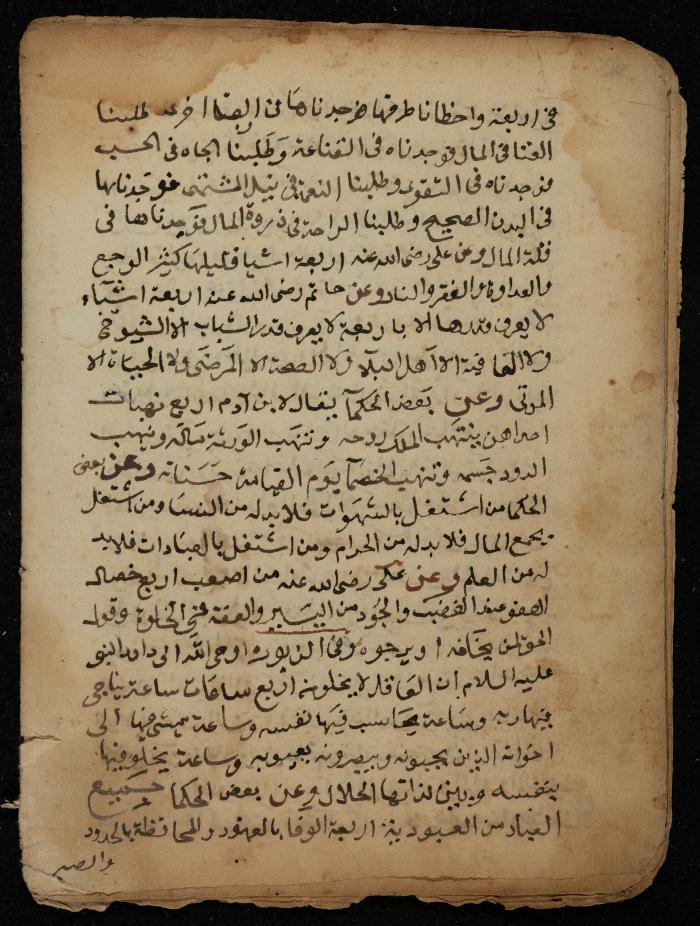 فى اربعة واخطانا طرقها فوجدناها فى اربعة اخرى طلبنا
الغنا فى المال فوجدناه فى القناعة وَطَلبنا الجاه فى الحسب
فوجدناه فى التقوى وطلبنا النعمة فى نيل المشتهى فوجدناها
فى البدن الصحيح وطلبنا الراحة فى ذروة المال فوجدناها فى
قلة المال وعن على رضى الله عنه اربعة اشيا قليلها كثير الوجع
والعداوة والفقر والنار وعن حاتم رضى الله عنه اربعة اشيآء
لا يعرف قدرها الا باربعة لا يعرف قدر الشباب الا الشيوخ
ولا العافية الا اهل البلآ ولا الصحة الا المرضى ولا الحياة الا
الموتى وعن بعض الحكمآ يقال لابن آدم اربع نهبات
احداهن ينتهب الملك روحه وتنهب الورثة ماله وينهب
الدود جسمه وتنهب الخصمآ يوم القيامة حسناته وعن بعض
الحكما من اشتغل بالشهوات فلا بد له من النسا ومن اشتغل
بجمع المال فلا بد له من الحرام ومن اشتغل بالعبادات فلا بد
له من العلم وعن على رضى الله عنه من اصعب اربع خصال
العفو عند الغضب والجود من اليسير والعفة فى الخلوة وقول
الحق لمن يخافه او يرجوه وفى الزبور اوحى الله الى داود النبى
عليه السلام ان العاقل لا يخلو من اربع ساعات ساعة يناجى
فيها ربه وساعة يحاسب فيها نفسه وساعة يمشى فيها الى
اخوانه الذين يحبونه ويبصرونه بعيوبه وساعة يخلو فيها
بنفسه وبين لذاتها الحلال وعن بعض الحكما جميع
العباد من العبودية اربعة الوفا بالعهود والمحافظة بالحدود
والصبر